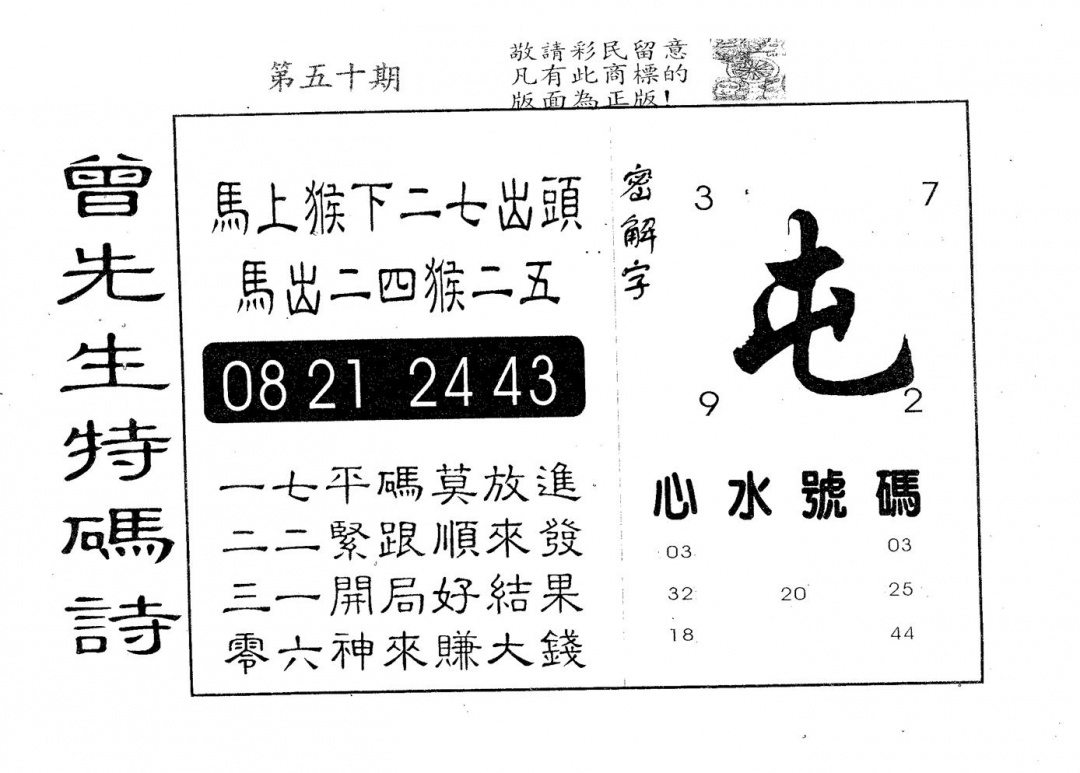 第五十期
敬請彩民留意
凡有此商標的
版面為正版!
曾先生特碼詩
馬上猴下二七出頭
馬出二四猴二五
08 21 24 43
一七平碼莫放進
二二緊跟順來發
三一開局好結果
零六神來賺大錢
密解字
3 7
屯
9 2
心水號碼
03 03
32 20 25
18 44